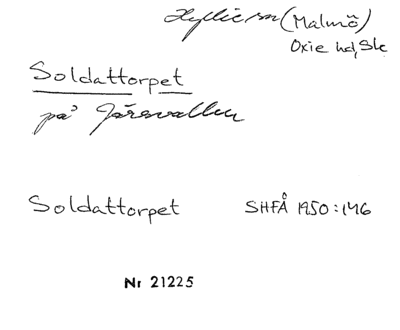 Hyllie sn (Malmö)
Oxie hd, Sk
Soldattorpet
på
Soldattorpet SHFÅ 1950:146
Nr 21225